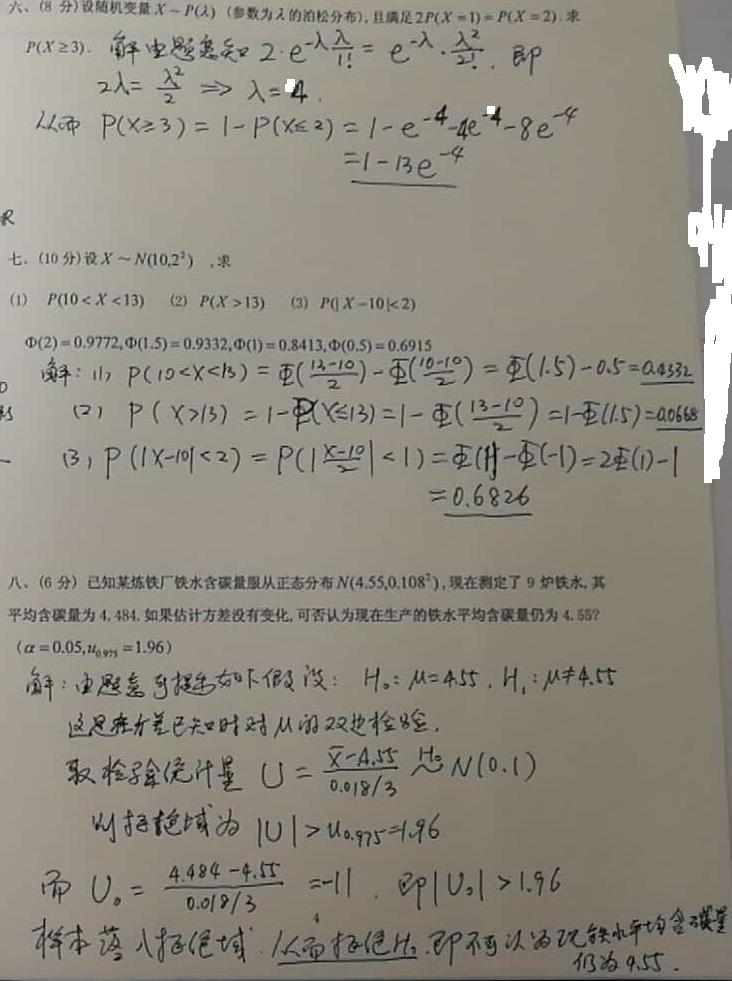 六、(8 分) 设随机变量 X ~ P(λ) (参数为 λ 的泊松分布), 且满足 2P(X = 1) = P(X = 2). 求
P(X ≥ 3). 解 由题意知 2·e^{-λ} λ/1! = e^{-λ}·λ²/2!. 即
2λ = λ²/2 ⇒ λ = 4.
从而 P(X≥3) = 1 - P(X≤2) = 1 - e^{-4} - 4e^{-4} - 8e^{-4}
= 1 - 13e^{-4}
七、(10 分) 设 X ~ N(10,2²) , 求
(1) P(10 < X < 13) (2) P(X > 13) (3) P(| X - 10 |< 2)
Φ(2) = 0.9772, Φ(1.5) = 0.9332, Φ(1) = 0.8413, Φ(0.5) = 0.6915
解: (1) P(10<X<13) = Φ((13-10)/2) - Φ((10-10)/2) = Φ(1.5) - 0.5 = 0.4332
(2) P(X>13) = 1 - P(X≤13) = 1 - Φ((13-10)/2) = 1 - Φ(1.5) = 0.0668
(3) P(|X-10|<2) = P(|(X-10)/2| < 1) = Φ(1) - Φ(-1) = 2Φ(1) - 1
= 0.6826
八、(6 分) 已知某炼铁厂铁水含碳量服从正态分布 N(4.55,0.108²), 现在测定了 9 炉铁水, 其
平均含碳量为 4.484. 如果估计方差没有变化, 可否认为现在生产的铁水平均含碳量仍为 4.55?
(α = 0.05, u_{0.975} = 1.96)
解: 由题意可提出如下假设: H₀: μ=4.55, H₁: μ≠4.55
这是在方差已知时对 μ 的双边检验.
取检验统计量 U = (X̄-4.55)/(0.018/3) ~^{H₀} N(0.1)
则拒绝域为 |U| > u_{0.975}=1.96
而 U₀ = (4.484-4.55)/(0.018/3) = -11. 即|U₀| > 1.96
样本落入拒绝域. 从而拒绝H₀. 即不可认为现铁水平均含碳量
仍为 4.55.
4